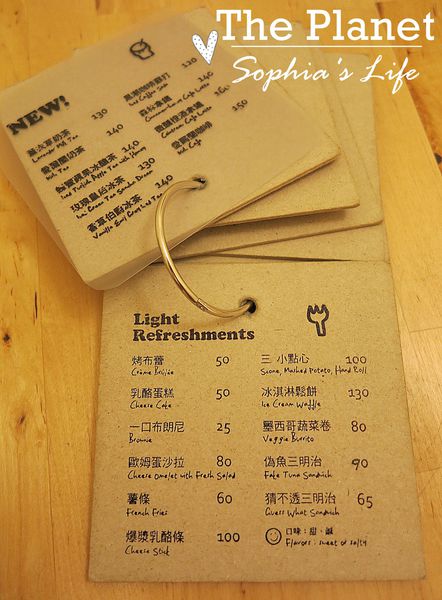 The Planet
Sophia's Life
NEW!
薰衣草奶茶 130
Lavender Milk Tea
愛爾蘭奶茶 140
Irish Tea
140
Iced Turkish Apple Tea with Honey
玫瑰皇后冰茶 130
香草伯爵冰茶 140
Vanilla Earl Grey Iced Tea
黑茶咖啡蘇打 120
Iced Coffee Soda
140
Cinnamon Caramel Cafe Latte
160
愛爾蘭咖啡 150
Light
Refreshments
烤布蕾 50
Crème Brûlée
乳酪蛋糕 50
Cheese Cake
一口布朗尼 25
Brownie
歐姆蛋沙拉 80
Cheese Omelet with Fresh Salad
薯條 60
French Fries
爆漿乳酪條 100
Cheese Stick
三小點心 100
Scone, Mashed Potato, Hand Roll
冰淇淋鬆餅 130
Ice Cream Waffle
墨西哥蔬菜卷 80
Veggie Burrito
偽魚三明治 90
Fake Tuna Sandwich
猜不透三明治 65
Guess What Sandwich
口味：甜、鹹
Flavors : sweet or salty